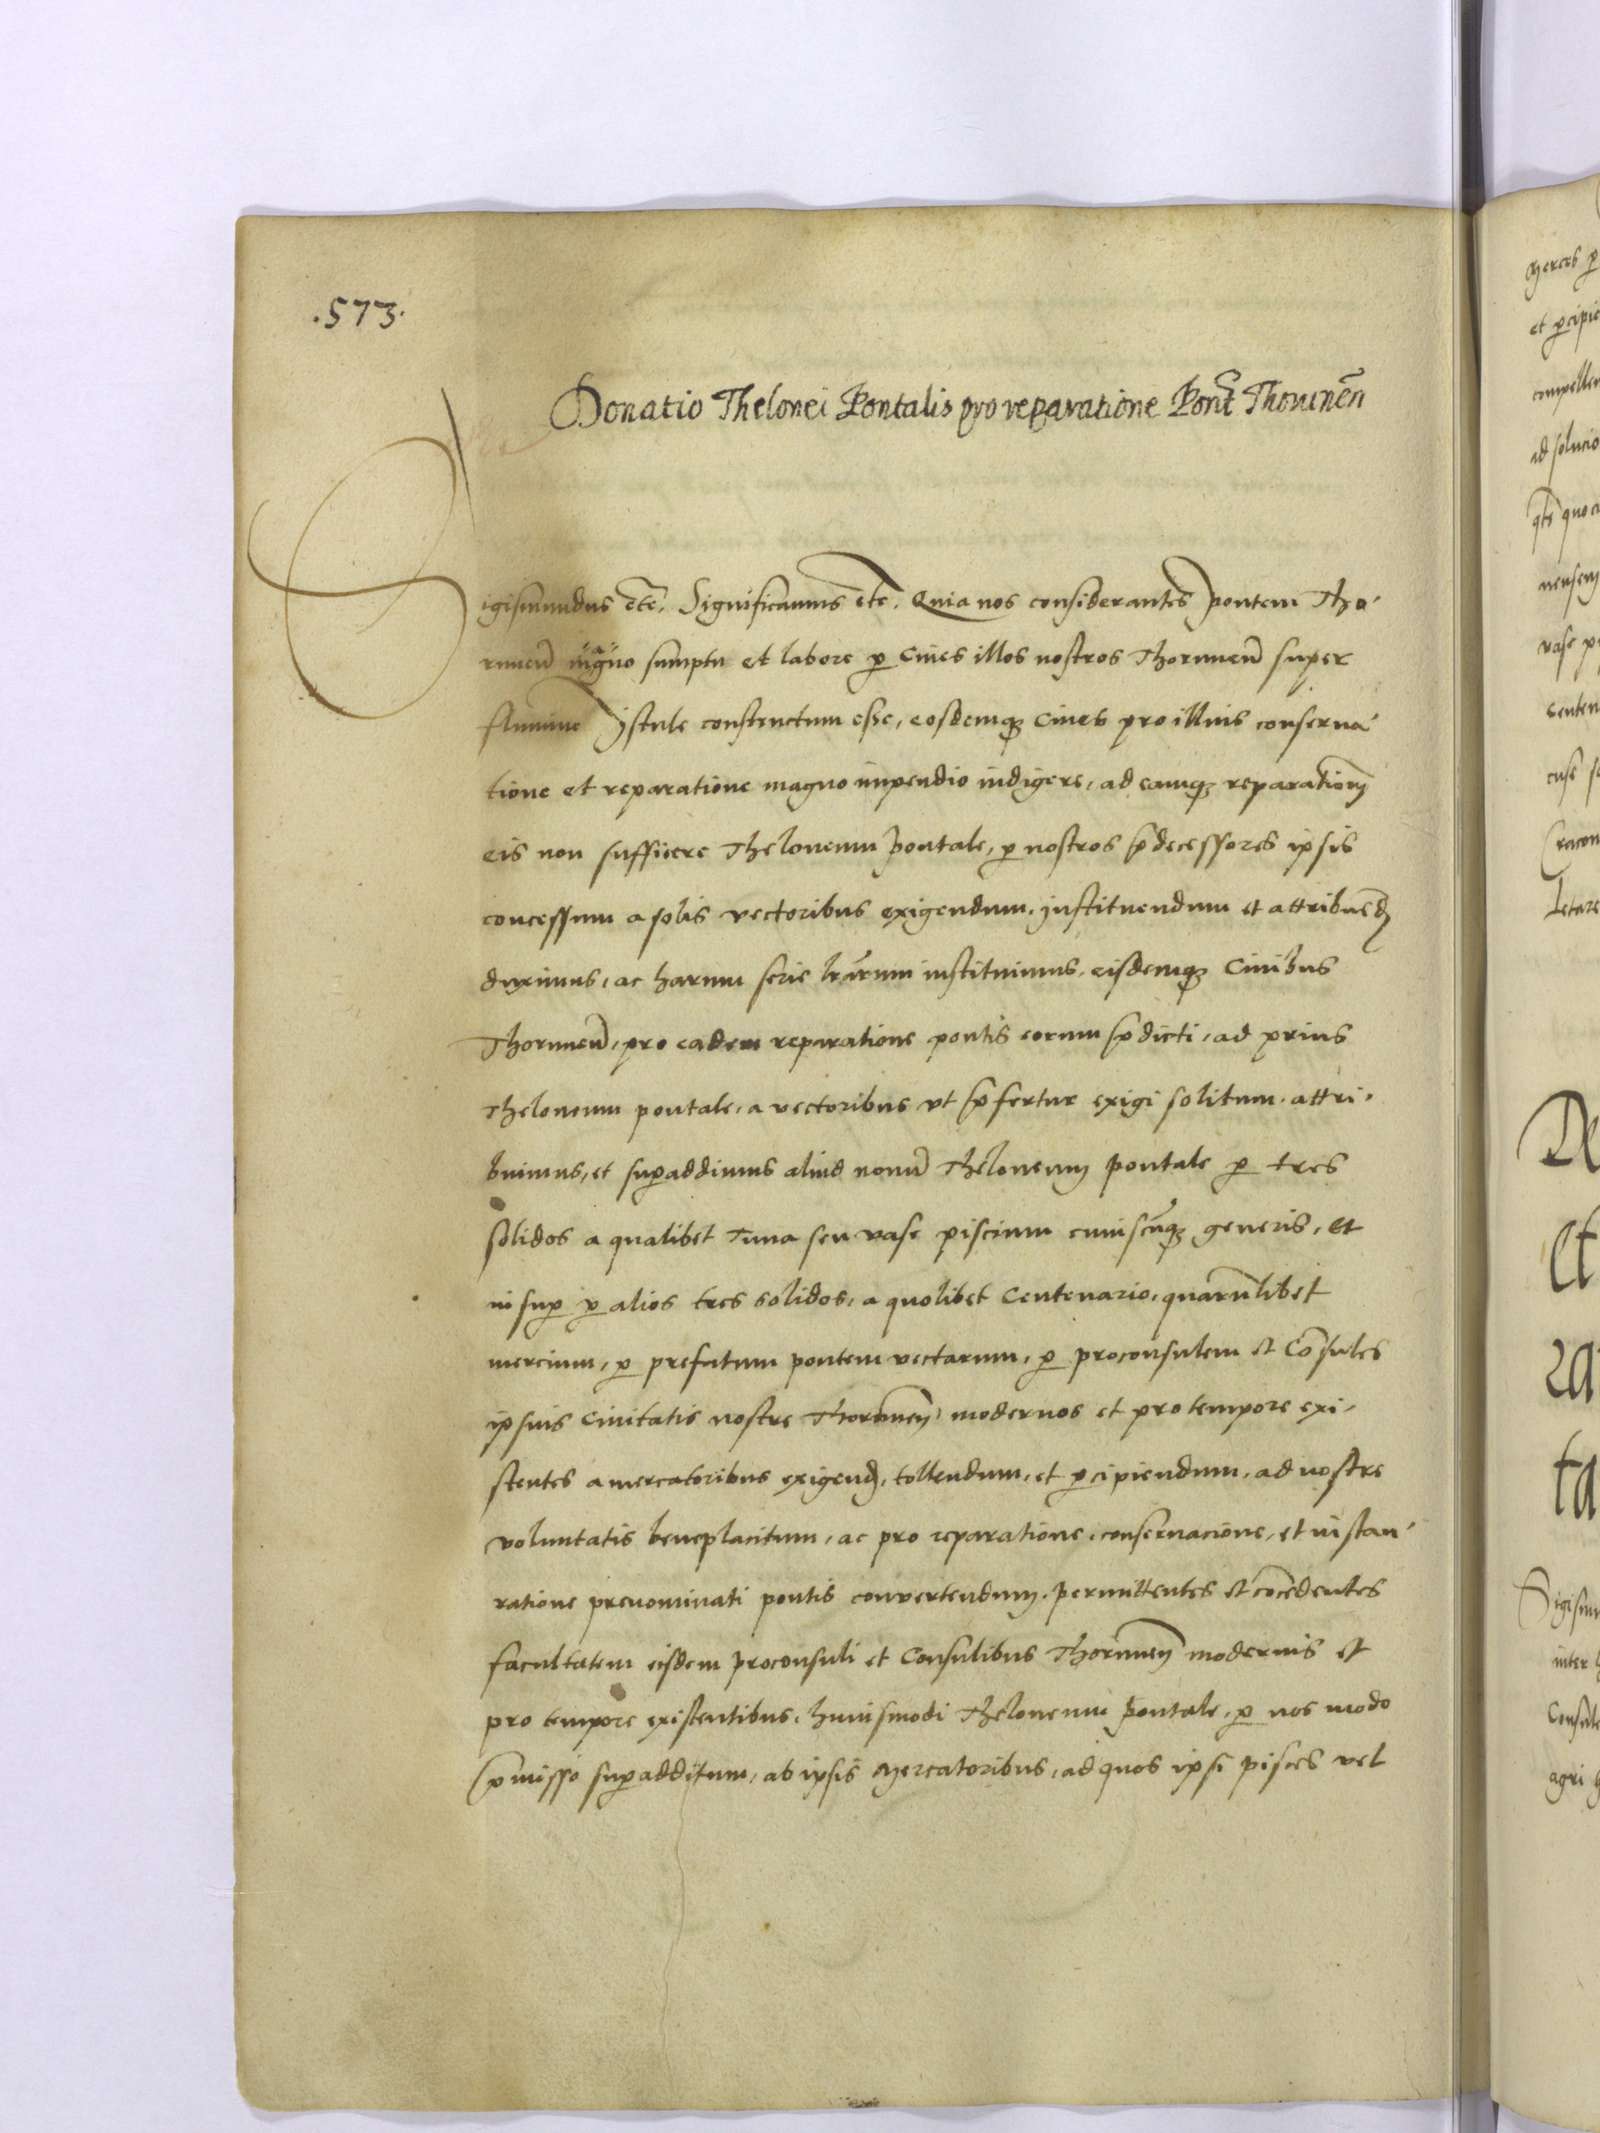 .573.
Donatio Thelonei Pontalis pro reparatione Pont̃ Thorunen̄
Sigismundus etc̄. Significamus etc̄. Quia nos considerantes pontem Tho-
runen̄ magno sumptu et labore p̱ Ciues illos nostros Thorunen̄ super
flumine Istule constructum esse, eosdemqꝫ Ciues pro illius conserua-
tione et reparatione magno impendio indigere, ad eamqꝫ reparationē
eis non sufficere Theloneum pontale, p̱ nostros p̄decessores ipsis
concessum a solis vectoribus exigendum, instituendum et attribuend̄
duximus, ac harum serie lr̄arum instituimus, eisdemqꝫ Ciuibus
Thorunen̄, pro eadem reparatione pontis eorum p̄dicti, ad prius
Theloneum pontale, a vectoribus vt p̄fertur exigi solitum, attri-
buimus, et sup̱addimus aliud nouū Theloneum pontale p̱ tres
solidos a qualibet Tuna seu vase piscium cuiuscūqꝫ generis, et
insup̱ p̱ alios tres solidos, a quolibet Centenario, quarūlibet
mercium, p̱ prefatum pontem vectarum, p̱ proconsulem et Cōsules
ipsius Ciuitatis nostre Thorunen̄ modernos et pro tempore exi-
stentes a mercatoribus exigend̄, tollendum, et p̱cipiendum, ad nostre
voluntatis beneplacitum, ac pro reparatione, conseruacione, et instau-
ratione prenominati pontis convertendum, permittentes et cōcedentes
facultatem eisdem proconsuli et Consulibus Thorunen̄ modernis et
pro tempore existentibus, huiusmodi Theloneum pontale, p̱ nos modo
p̄misso sup̱additum, ab ipsis Mercatoribus, ad quos ipsi pisces vel